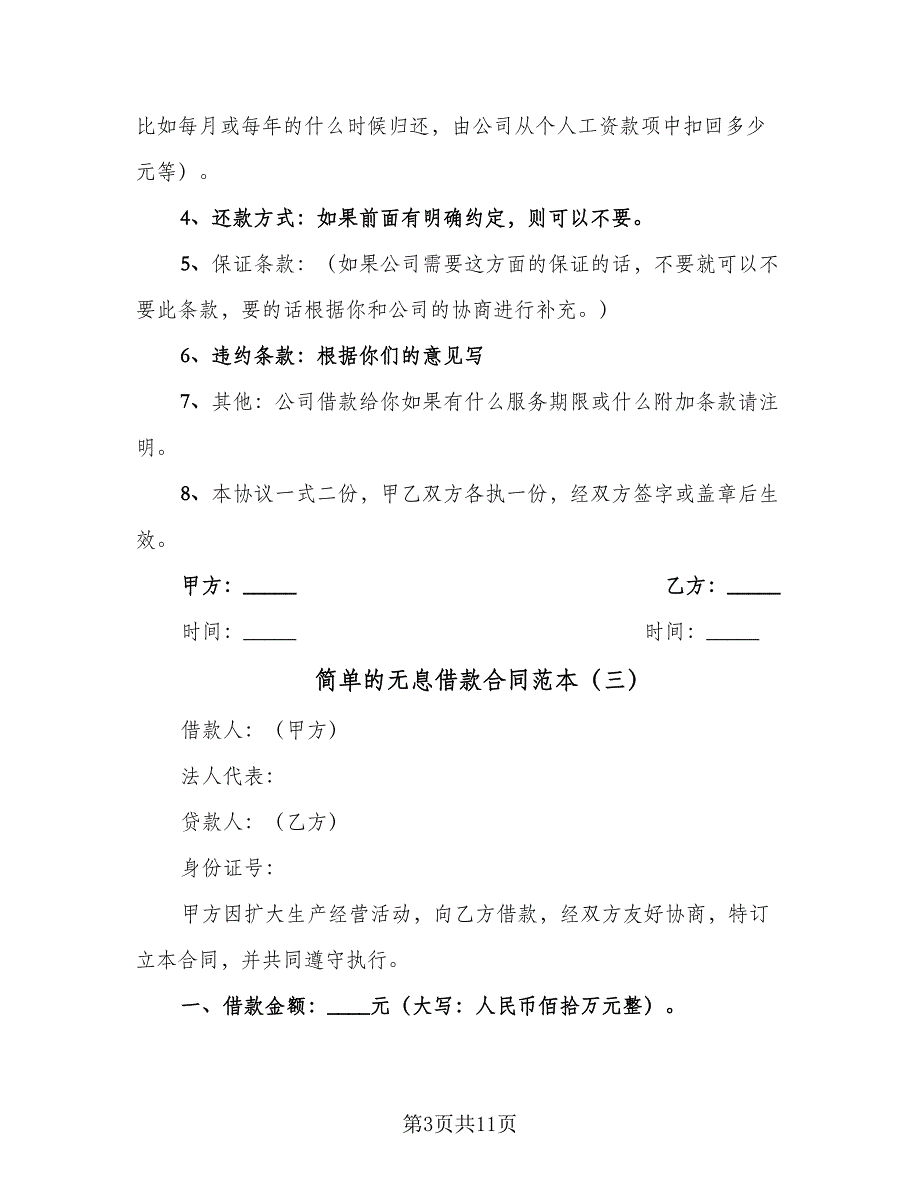 比如每月或每年的什么时候归还，由公司从个人工资款项中扣回多少
元等）。
4、还款方式：如果前面有明确约定，则可以不要。
5、保证条款：（如果公司需要这方面的保证的话，不要就可以不
要此条款，要的话根据你和公司的协商进行补充。）
6、违约条款：根据你们的意见写
7、其他：公司借款给你如果有什么服务期限或什么附加条款请注
明。
8、本协议一式二份，甲乙双方各执一份，经双方签字或盖章后生
效。
甲方：_____ 乙方：_____
时间：_____ 时间：_____
简单的无息借款合同范本（三）
借款人：（甲方）
法人代表：
贷款人：（乙方）
身份证号：
甲方因扩大生产经营活动，向乙方借款，经双方友好协商，特订
立本合同，并共同遵守执行。
一、借款金额：____元（大写：人民币佰拾万元整）。
第3页共11页